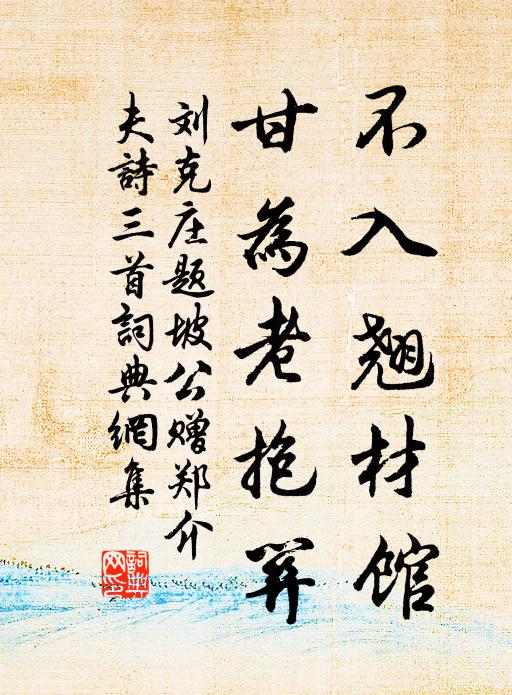 不入翘材館
甘為老抱关
刘克庄题坡公赠郑介
夫詩三首詞典網集